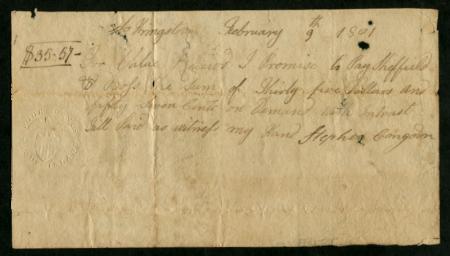 So Kingstown February 9th 1801
$35-57-
For Value Receivd I Promise to Pay Sheffield
& Boss the Sum of Thirty five Dollars and
fifty Seven Cents on Demand with Intrest
till Paid as witness my Hand Stephen Congdon